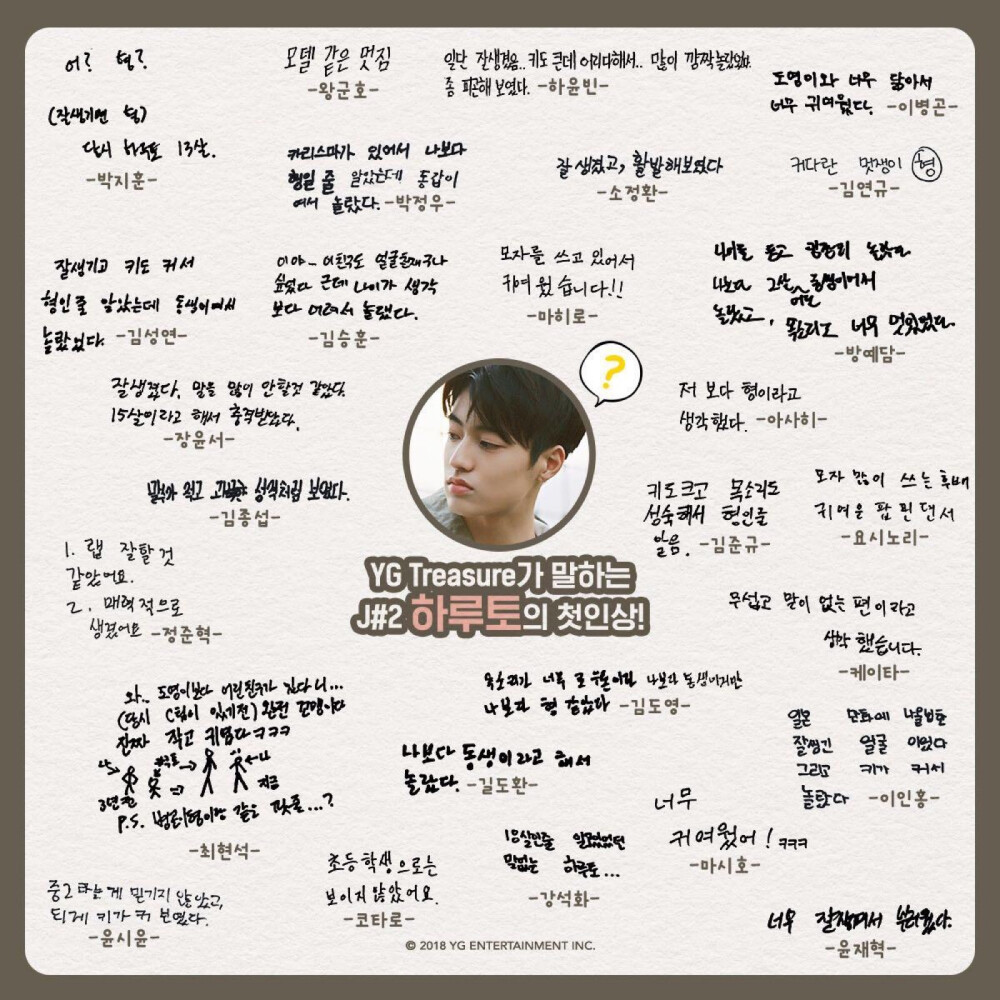 어? 형?
(잘생기면 형)
당시 하루토 13살.
-박지훈-
모델 같은 멋짐
-왕군호-
일단 잘생겼음.. 키도 큰데 어리다해서.. 많이 깜짝놀랐었다
좀 피곤해 보였다. -하윤빈-
도영이와 너무 닮아서
너무 귀여웠다. -이병곤-
카리스마가 있어서 나보다
형일 줄 알았는데 동갑이
여서 놀랐다. -박정우-
잘생겼고, 활발해보였다
-소정환-
커다란 멋쟁이 형
-김연규-
잘생기고 키도 커서
형인줄 알았는데 동생이여서
놀랐었다. -김성연-
이야~ 이친구도 얼굴천재구나
싶었다 근데 나이가 생각
보다 어려서 놀랬다.
-김승훈-
모자를 쓰고 있어서
귀여웠습니다!!
-마히로-
나이를 듣고 굉장히 놀랐다
나보다 2살 어린 동생이어서
놀랐고, 목소리도 너무 멋있었다.
-방예담-
잘생겼다. 말을 많이 안할것 같았다.
15살이라고 해서 충격받았다.
-장윤서-
?
저 보다 형이라고
생각했다. -아사히-
말수 적고 성숙처럼 보였다.
-김종섭-
키도크고 목소리도
성숙해서 형인줄
알음. -김준규-
모자 많이 쓰는 후배
귀여운 팝핀댄서
-요시노리-
1. 랩 잘할 것
같았어요.
2. 매력적으로
생겼어요 -정준혁-
YG Treasure가 말하는
J#2 하루토의 첫인상!
무섭고 말이 없는 편이라고
생각 했습니다.
-케이타-
와.. 도영이보다 어린친구가 있다니...
(당시 C팀이 있기전) 완전 꼬맹이다
진짜 작고 귀엽다ㅋㅋㅋ
나→ 하루토→ ←나
3년전 ⇒ 지금
P.S. 병곤이형이랑 같은 ...?
-최현석-
목소리가 너무 나보다 동생이지만
나보다 형 같았다 -김도영-
나보다 동생이라고 해서
놀랐다. -길도환-
일본 만화에 나올법한
잘생긴 얼굴 이었다
그리고 키가 커서
놀랐다 -이인홍-
너무
귀여웠어! ㅋㅋㅋ
-마시호-
18살인줄 알았었던
말없는 하루토...
-강석화-
초등학생으로는
보이지 않았어요.
-코타로-
중2 라는 게 믿기지 않았고,
되게 키가 커 보였다.
-윤시윤-
너무 잘생겨서 부러웠다.
-윤재혁-
© 2018 YG ENTERTAINMENT INC.